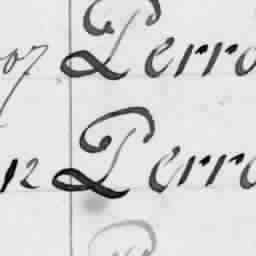 07 Perro
12 Perro